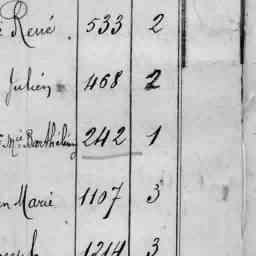 René. 533 2
Julien 468 2
Mie Barthélemy 242 1
Marie 1107 3
1214 3